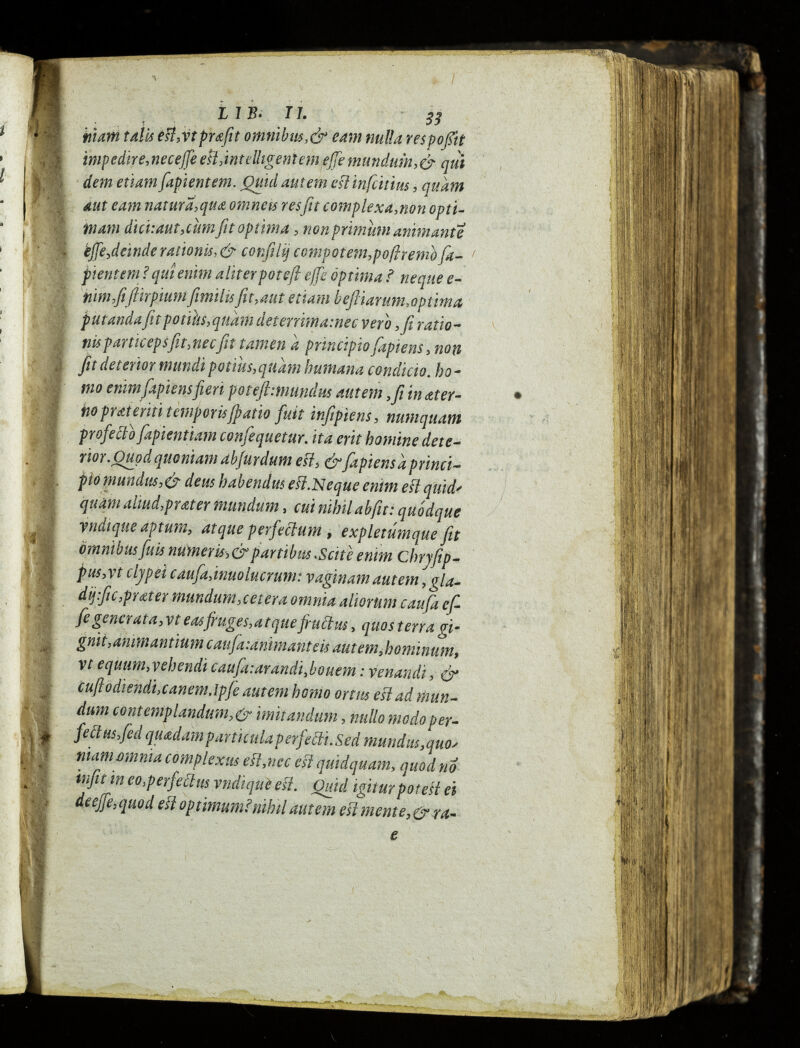 LIB. II. 33
niam talis est, vt præsit omnibus, & eam nulla res poßit
impedire, necesse est, intelligentem esse mundum, & qui
dem etiam sapientem. Quid autem est inscitius, quàm
aut eam naturā, quæ omneis res sit complexa, non opti-
mam dici: aut, cùm sit optima, non primùm animantē
esse, deinde rationis, & consilij compotem, postremò sa-
pientem? qui enim aliter potest esse optima? neque e-
nim, si stirpium similis sit, aut etiam bestiarum, optima
putanda sit potiùs, quàm deterrima: nec verò, si ratio-
nis particeps sit, nec sit tamen à principio sapiens, non
sit deterior mundi potiùs, quàm humana condicio. ho-
mo enim sapiens fieri potest: mundus autem, si in æter-
no præteriti temporis spatio fuit insipiens, numquam
profectò sapientiam consequetur. ita erit homine dete-
rior. Quod quoniam absurdum est, & sapiens à princi-
pio mundus, & deus habendus est. Neque enim est quid-
quam aliud, præter mundum, cui nihil absit: quòdque
vndique aptum, atque perfectum, expletúmque sit
omnibus suis numeris, & partibus. Scitè enim Chrysip-
pus, vt clypei causa, inuolucrum: vaginam autem, gla-
dij: sic, præter mundum, cetera omnia aliorum causa es-
se generata, vt eas fruges, atque fructus, quos terra gi-
gnit, animantium causa: animanteis autem, hominum,
vt equum, vehendi causa: arandi, bouem: venandi, &
custodiendi, canem. Ipse autem homo ortus est ad mun-
dum contemplandum, & imitandum, nullo modo per-
fectus, sed quædam particula perfecti. Sed mundus, quo-
niam omnia complexus est, nec est quidquam, quod nō
insit in eo, perfectus vndique est. Quid igitur potest ei
deesse, quod est optimum? nihil autem est mente, & ra-
e